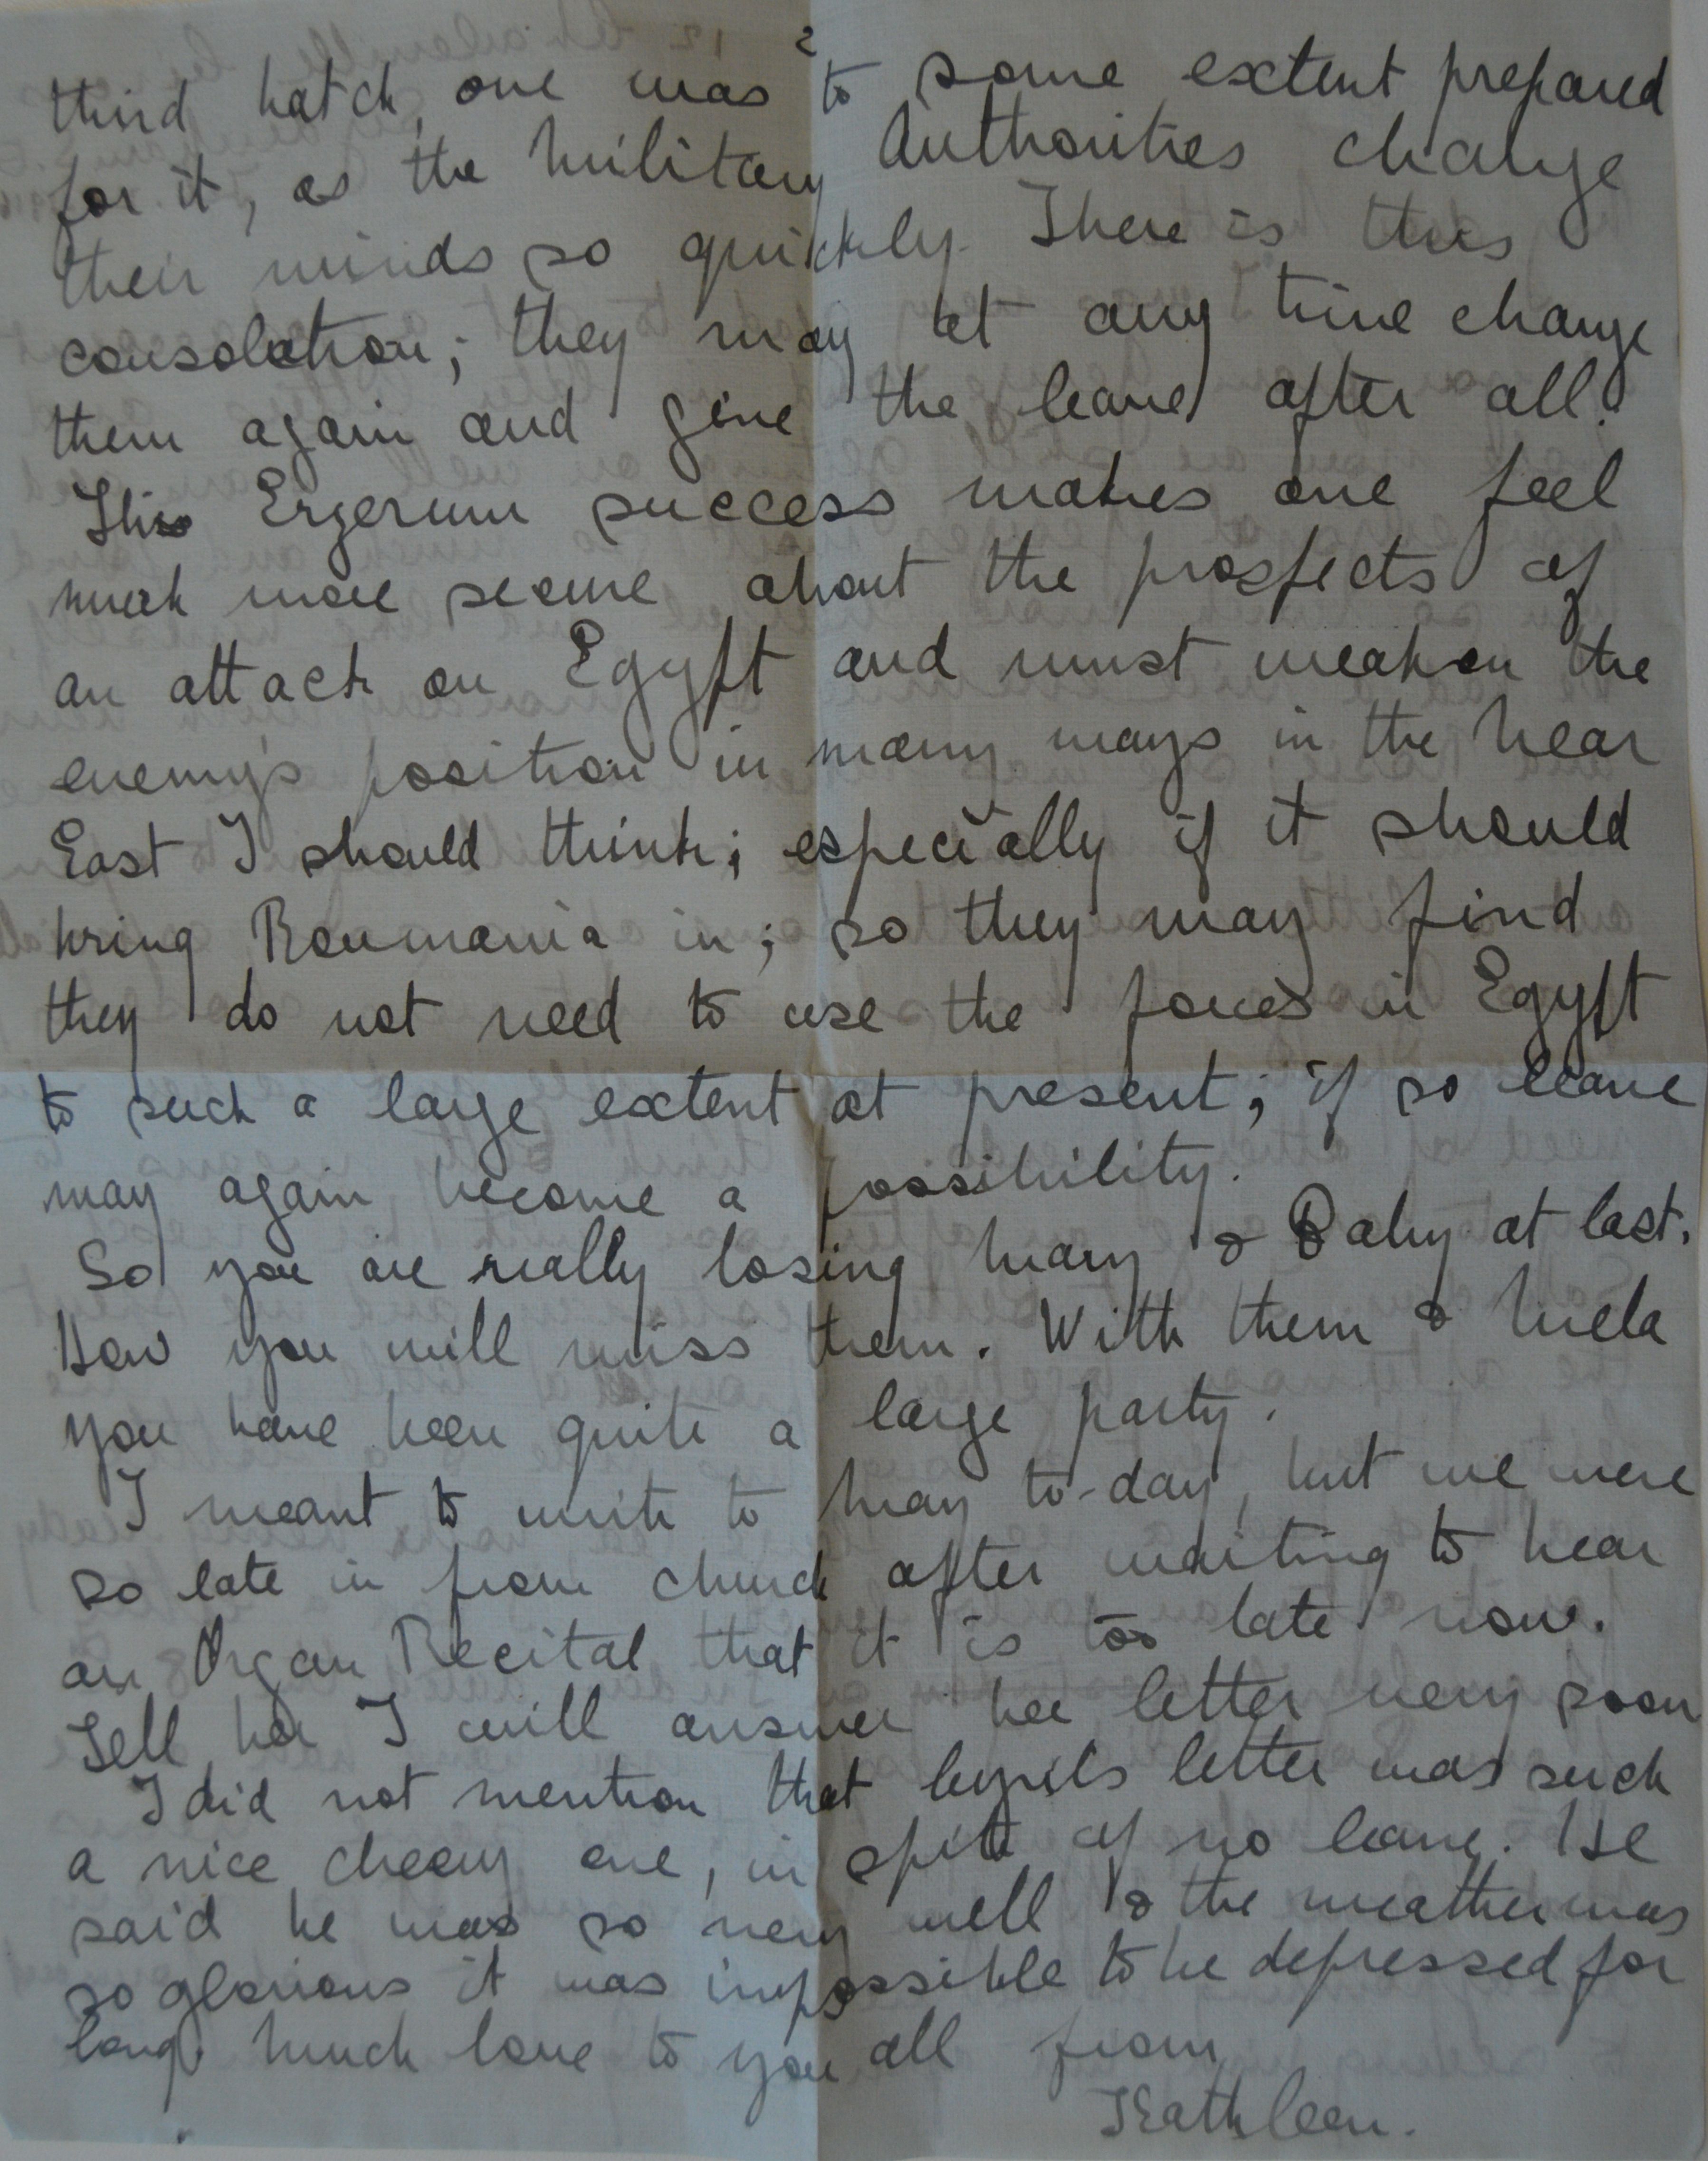 2
third batch, one was to some extent prepared
for it, as the Military Authorities change
their minds so quickly. There is this
consolation; they may at any time change
them again and give the leave after all.
This Erzerum success makes one feel
much more secure about the prospects of
an attack on Egypt and must weaken the
enemy's position in many ways in the Near
East I should think; especially if it should
bring Roumania in; so they may find
they do not need to use the forces in Egypt
to such a large extent at present; if so leave
may again become a possibility.
So you are really losing Mary & Baby at last.
How you will miss them. With them & Mela
you have been quite a large party.
I meant to write to May to-day, but we were
so late in from church after waiting to hear
an Organ Recital that it is too late now.
Tell her I will answer her letter very soon
I did not mention that Cyril's letter was such
a nice cheery one, in spite of no leave. He
said he was so very well & the weather was
so glorious it was impossible to be depressed for
long. Much love to you all from
Kathleen.